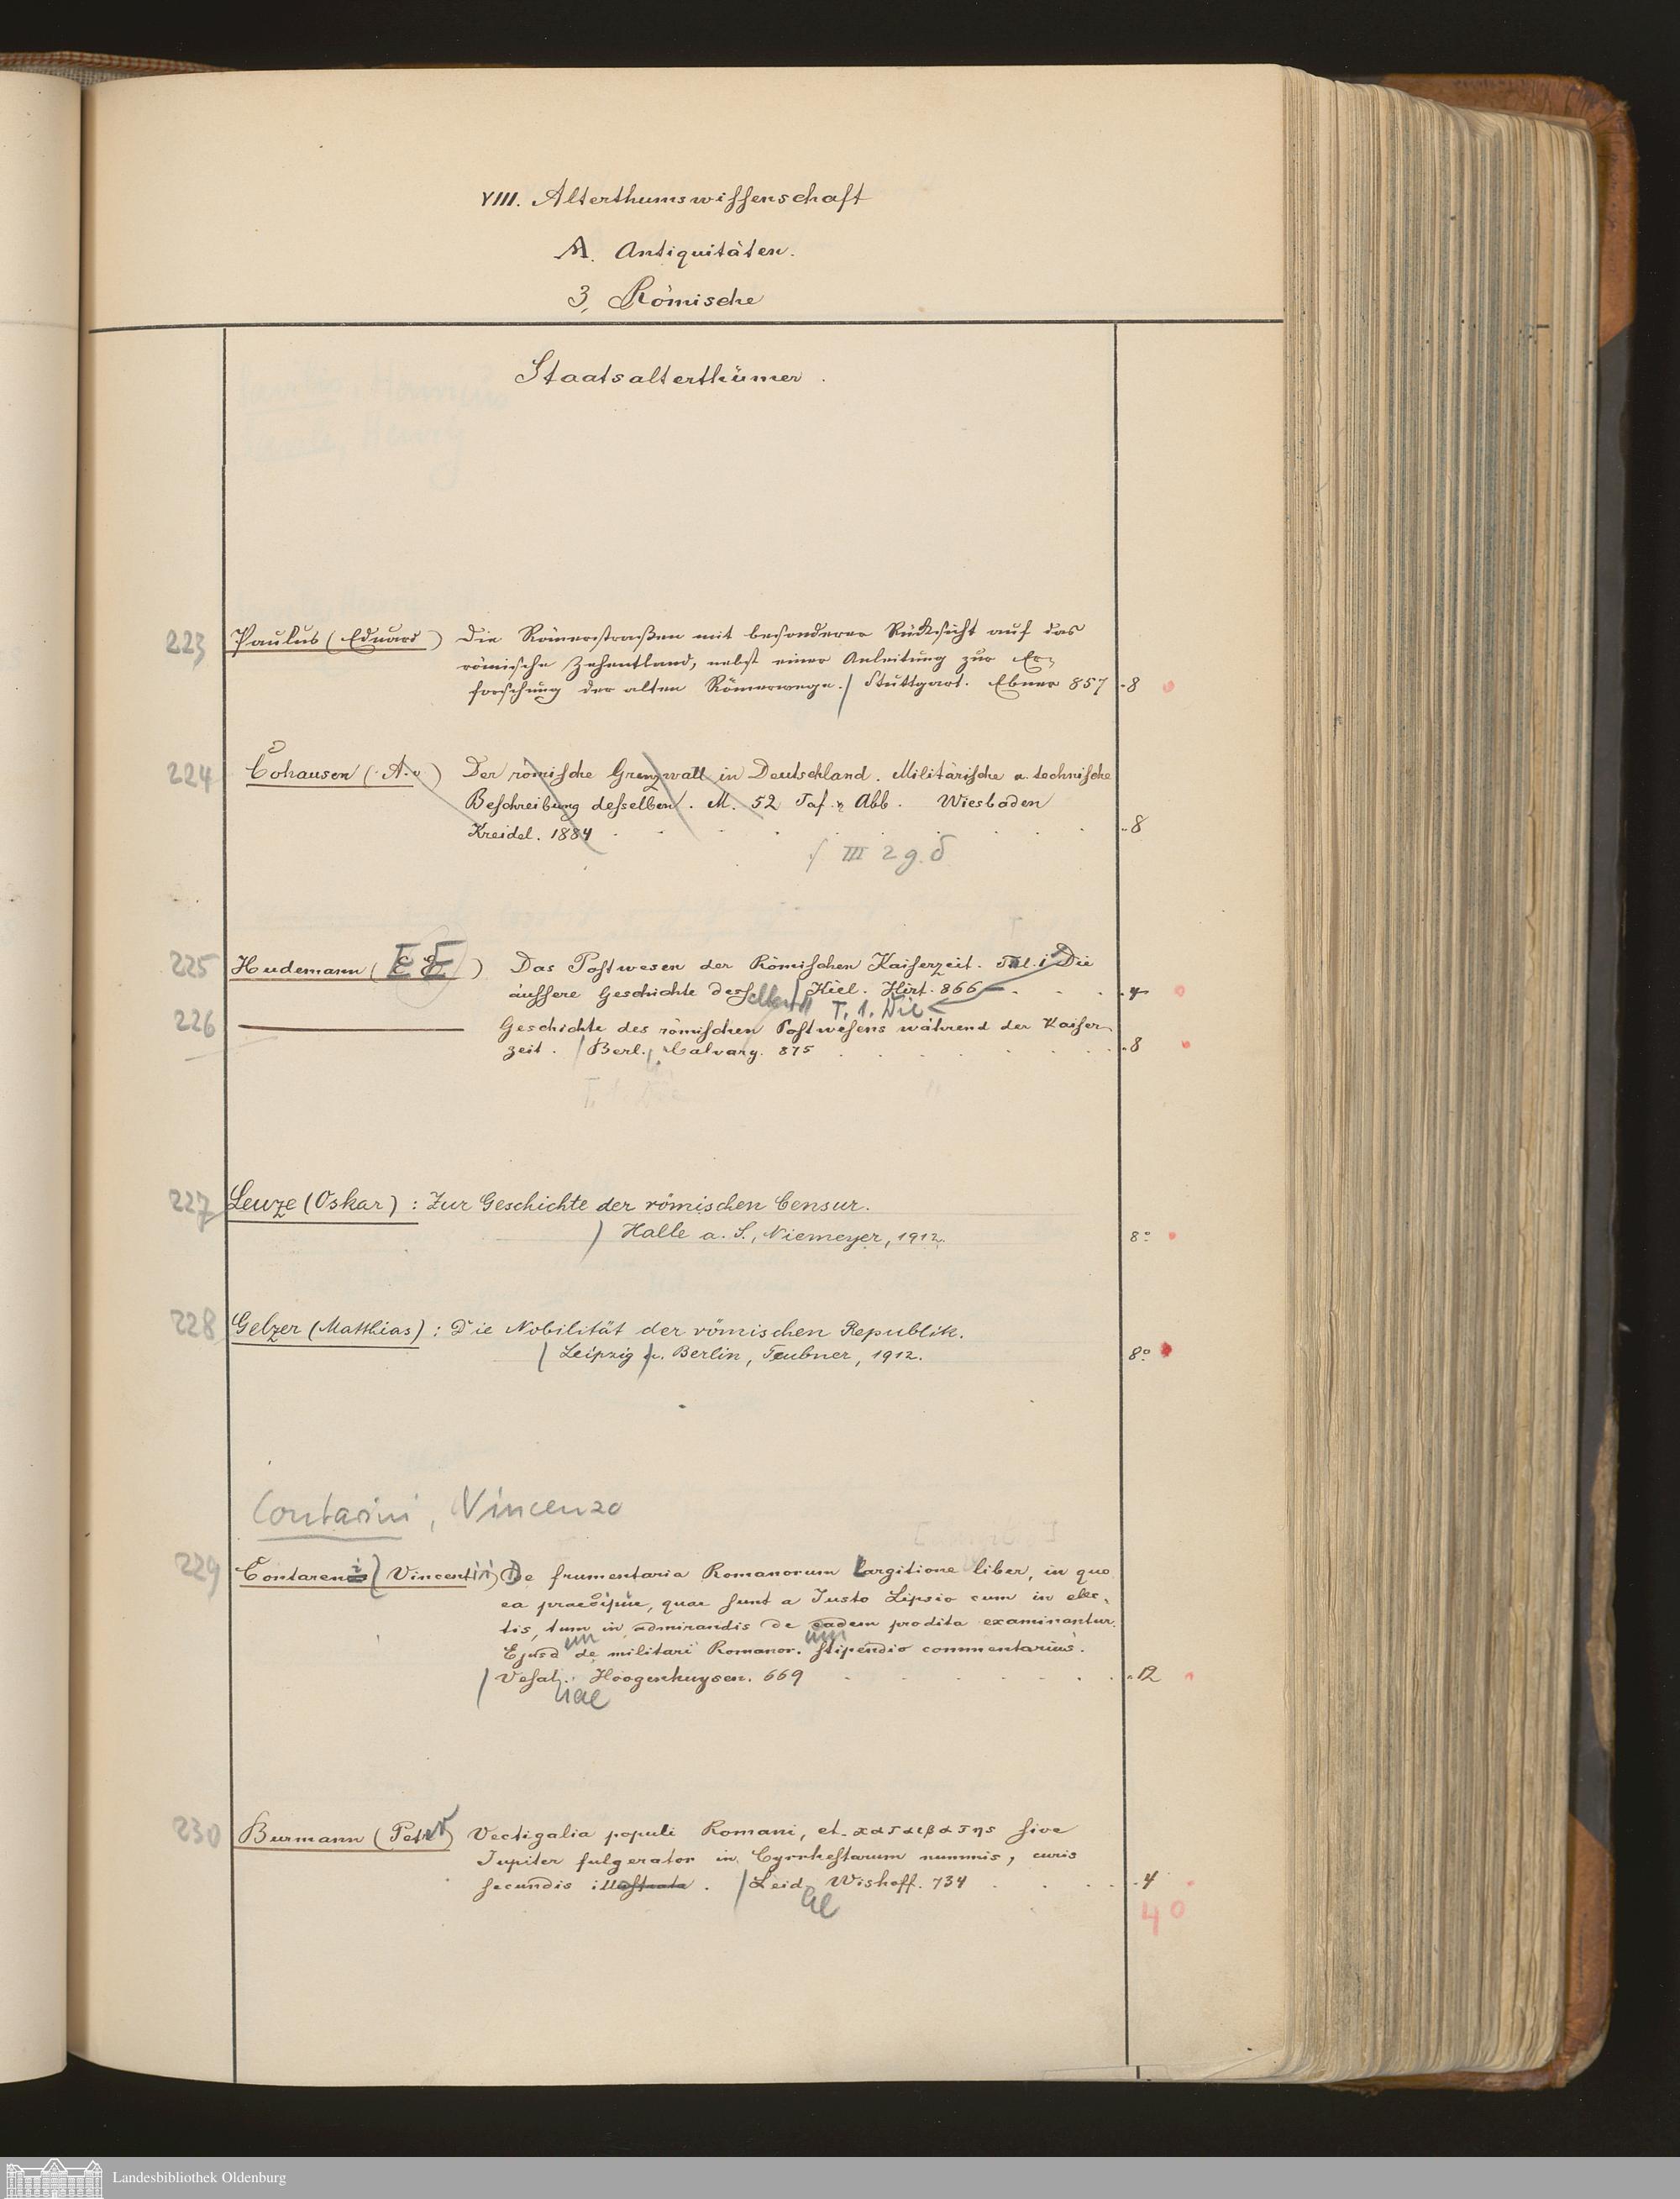 VIII. Alterthumswissenschaft
A. Antiquitäten.
3, Römische
Staatsalterthümer.
223 Paulus (Eduard) Die Römerstraßen mit besonderer Rücksicht auf das
römische Zehentland, nebst einer Anleitung zur Er-
forschung der alten Römerwege. / Stuttgart. Ebner 857 8
224 Cohausen (A. v) Der römische Grenzwall in Deutschland. Militärische u. technische
Beschreibung desselben. M. 52 Taf. u. Abb. Wiesbaden
Kreidel. 1884 8
III 2 g. δ
225 Hudemann (E E) Das Postwesen der Römischen Kaiserzeit. Thl. 1 Die
äussere Geschichte desselben / Kiel. Hirt. 866 4
T. 1. Die
226 Geschichte des römischen Postwesens während der Kaiser-
zeit. / Berl., Calvary. 875 8
227 Leuze (Oskar) : Zur Geschichte der römischen Censur.
/ Halle a. S., Niemeyer, 1912. 8°
228 Gelzer (Matthias) : Die Nobilität der römischen Republik.
/ Leipzig u. Berlin, Teubner, 1912. 8°
Contarini, Vincenzo
229 Contareni (Vincentii) De frumentaria Romanorum Largitione liber, in quo
ea praecipue, quae sunt a Justo Lipsio cum in elec-
tis, tum in admirandis de eadem prodita examinantur.
Ejusd de militari Romanor. stipendio commentarius.
um um
/ Vesal. Hoogenhuysen. 669 12
iae
230 Burmann (Petr) Vectigalia populi Romani, et καταιβατης sive
Jupiter fulgerator in Cyrrhestarum nummis, curis
secundis illustrata. / Leid. Wishoff. 734 4
40
Landesbibliothek Oldenburg